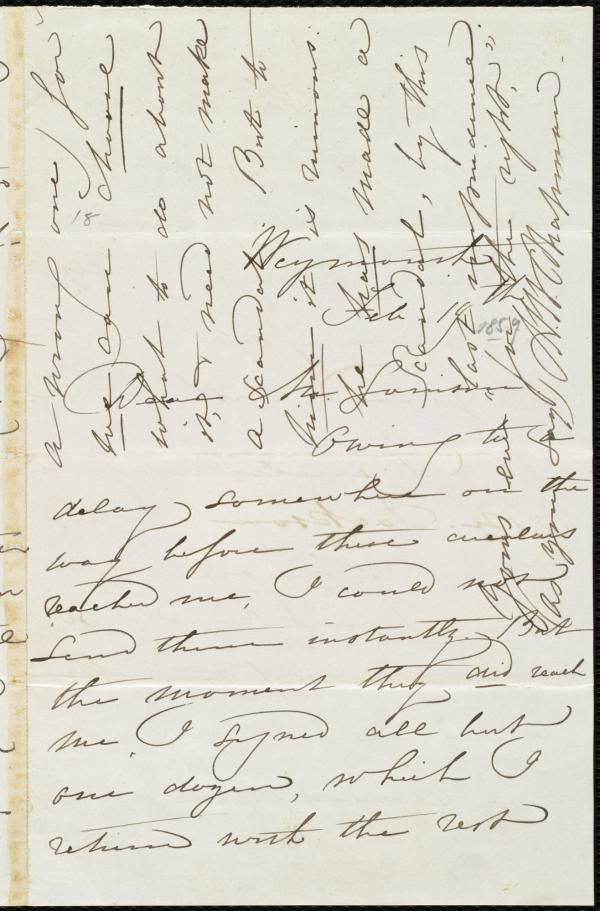 Weymouth
Feb 18th
1859
Dear Mr Garrison
Owing to
delay somewhere on the
way before these circulars
reached me, I could not
send them instantly. But
the moment they did reach
me I signed all but
one dozen, which I
return with the rest
18
a wrong one, for
we can choose
what to do about
it, & need not make
a scandal. But to
it is ruinous.
He has made a
scandal, by this
last imprudence.
Yours ever "for the right,"
as you say,
M. W. Chapman.